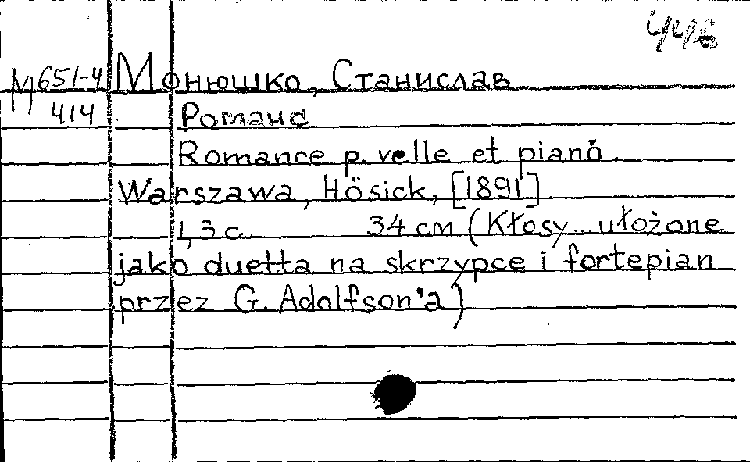 446
М 651-4 Монюшко, Станислав
414 Романс
Romance p. velle et piano.
Warszawa, Hösick, [1891]
1,3 с. 34 см (Kłosy... ułożone
jako duetta na skrzypce i fortepian
przez G. Adolfson'a)